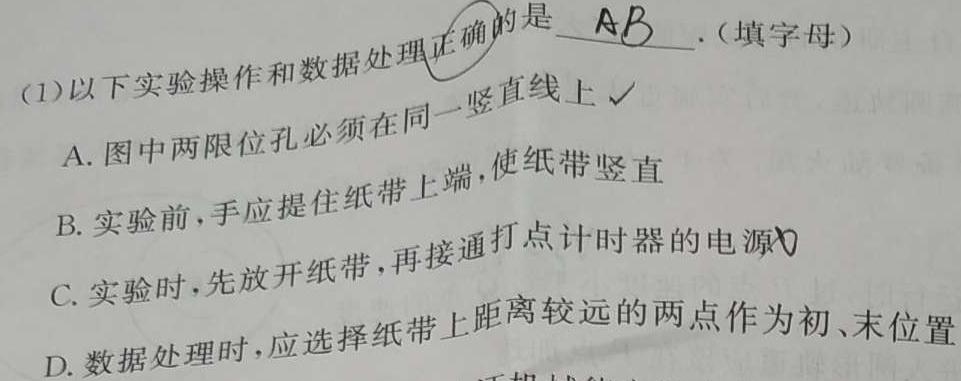 (1)以下实验操作和数据处理正确的是 AB .(填字母)
A. 图中两限位孔必须在同一竖直线上 ✓
B. 实验前,手应提住纸带上端,使纸带竖直
C. 实验时,先放开纸带,再接通打点计时器的电源
D. 数据处理时,应选择纸带上距离较远的两点作为初、末位置